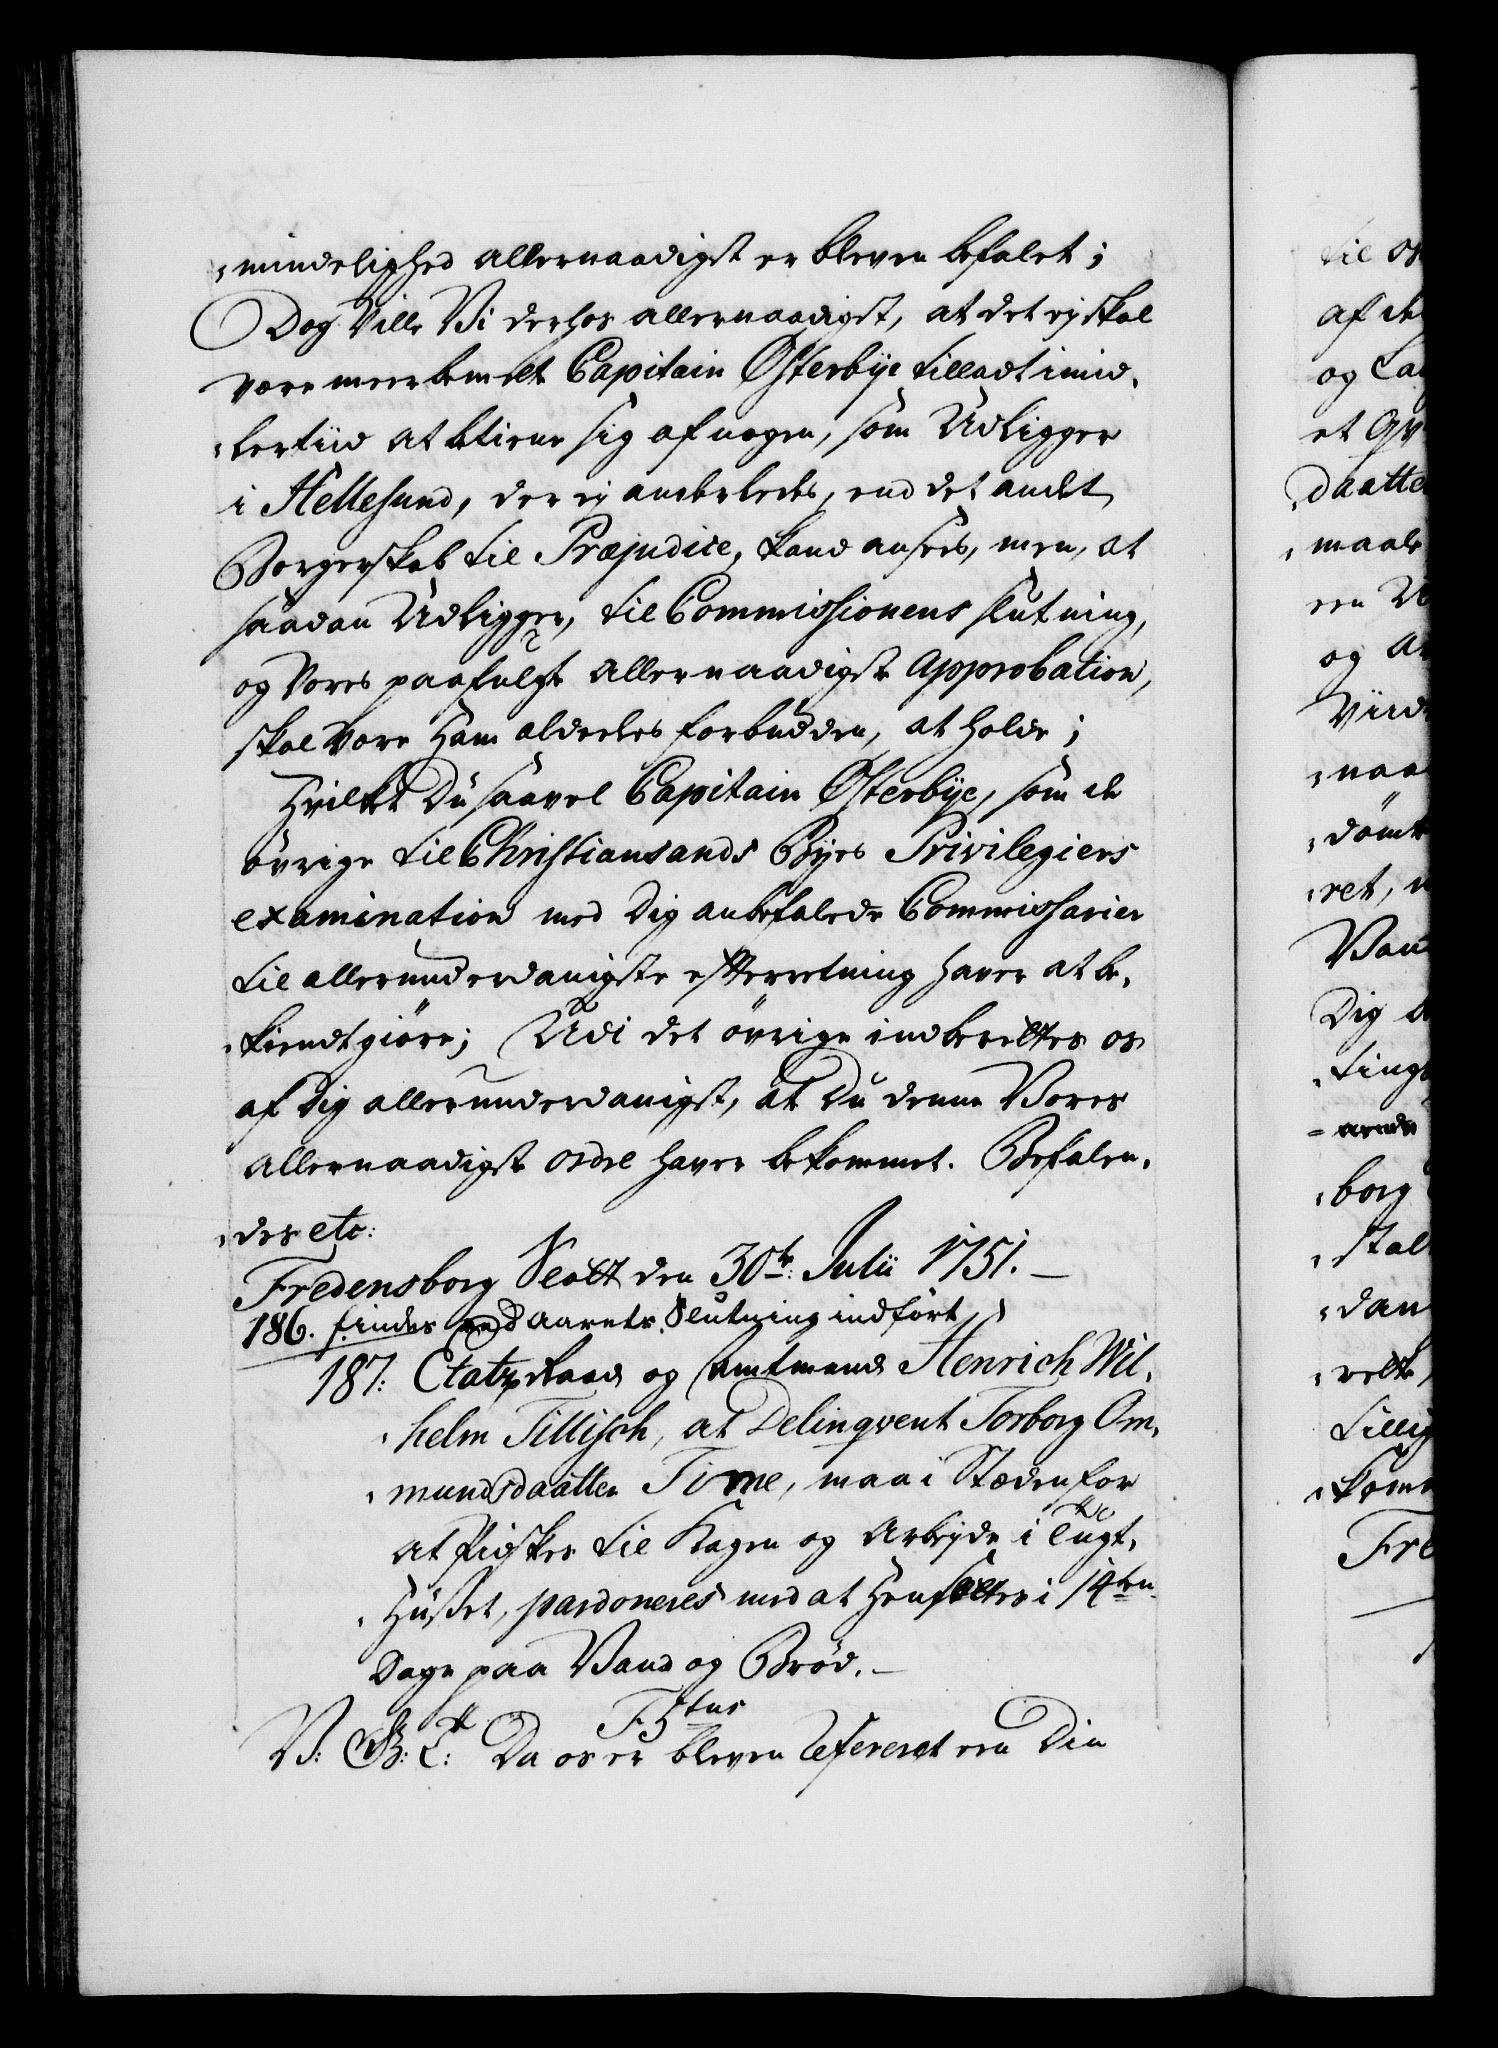 „mindelighed allernaadigst er bleven befalet;
Dog Ville Vi derhos allernaadigst, at det ej skal
være meerbemelte Capitain Østerbÿe tilladt imid„
„lertiid at betiene sig af nogen, som Udligger
i Hellesund, der ej anderledes, end det andet
Borgerskab til Præjudice, kand ansees, men, at
saadan Udligger, til Commissionens slutning,
og Vores paafulgte allernaadigste Approbation,
skal være Ham aldeeles forbudden, at holde;
Hvilket Du saavel Capitain Østerbÿe, som de
övrige til Christiansands Byes Privilegiers
examination med Dig anbefalede Commissarier
til allerunderdanigste efterretning haver at be„
„kiendtgiöre; Udi det övrige indberettes os
af Dig allerunderdanigst, at Du denne Vores
allernaadigste ordre haver bekommet. Befalen„
„des etc:
Fredensborg Slott den 30te: Julii 1751. —
186. findes ved Aarets Slutning indfört
187: Etatzraad og Amtmand Henrich Wil„
„helm Tillisch, at Delinqvent Torborg Om„
„mundsdaatter Time, maa i Stæden for
at pidskes til Kagen og Arbejde i Tugt„
„Huset, pardoneres med at Hensettes i 14ten
Dage paa Vand og Bröd. —
F. 5tus
V: G: T: Da os er bleven refereret een Din
til os
af de
og La
et Qv
Daatte
„maal
een
og
„naa
„dömt
„ret,
Dig
„tings
„borg
„dan
Fre